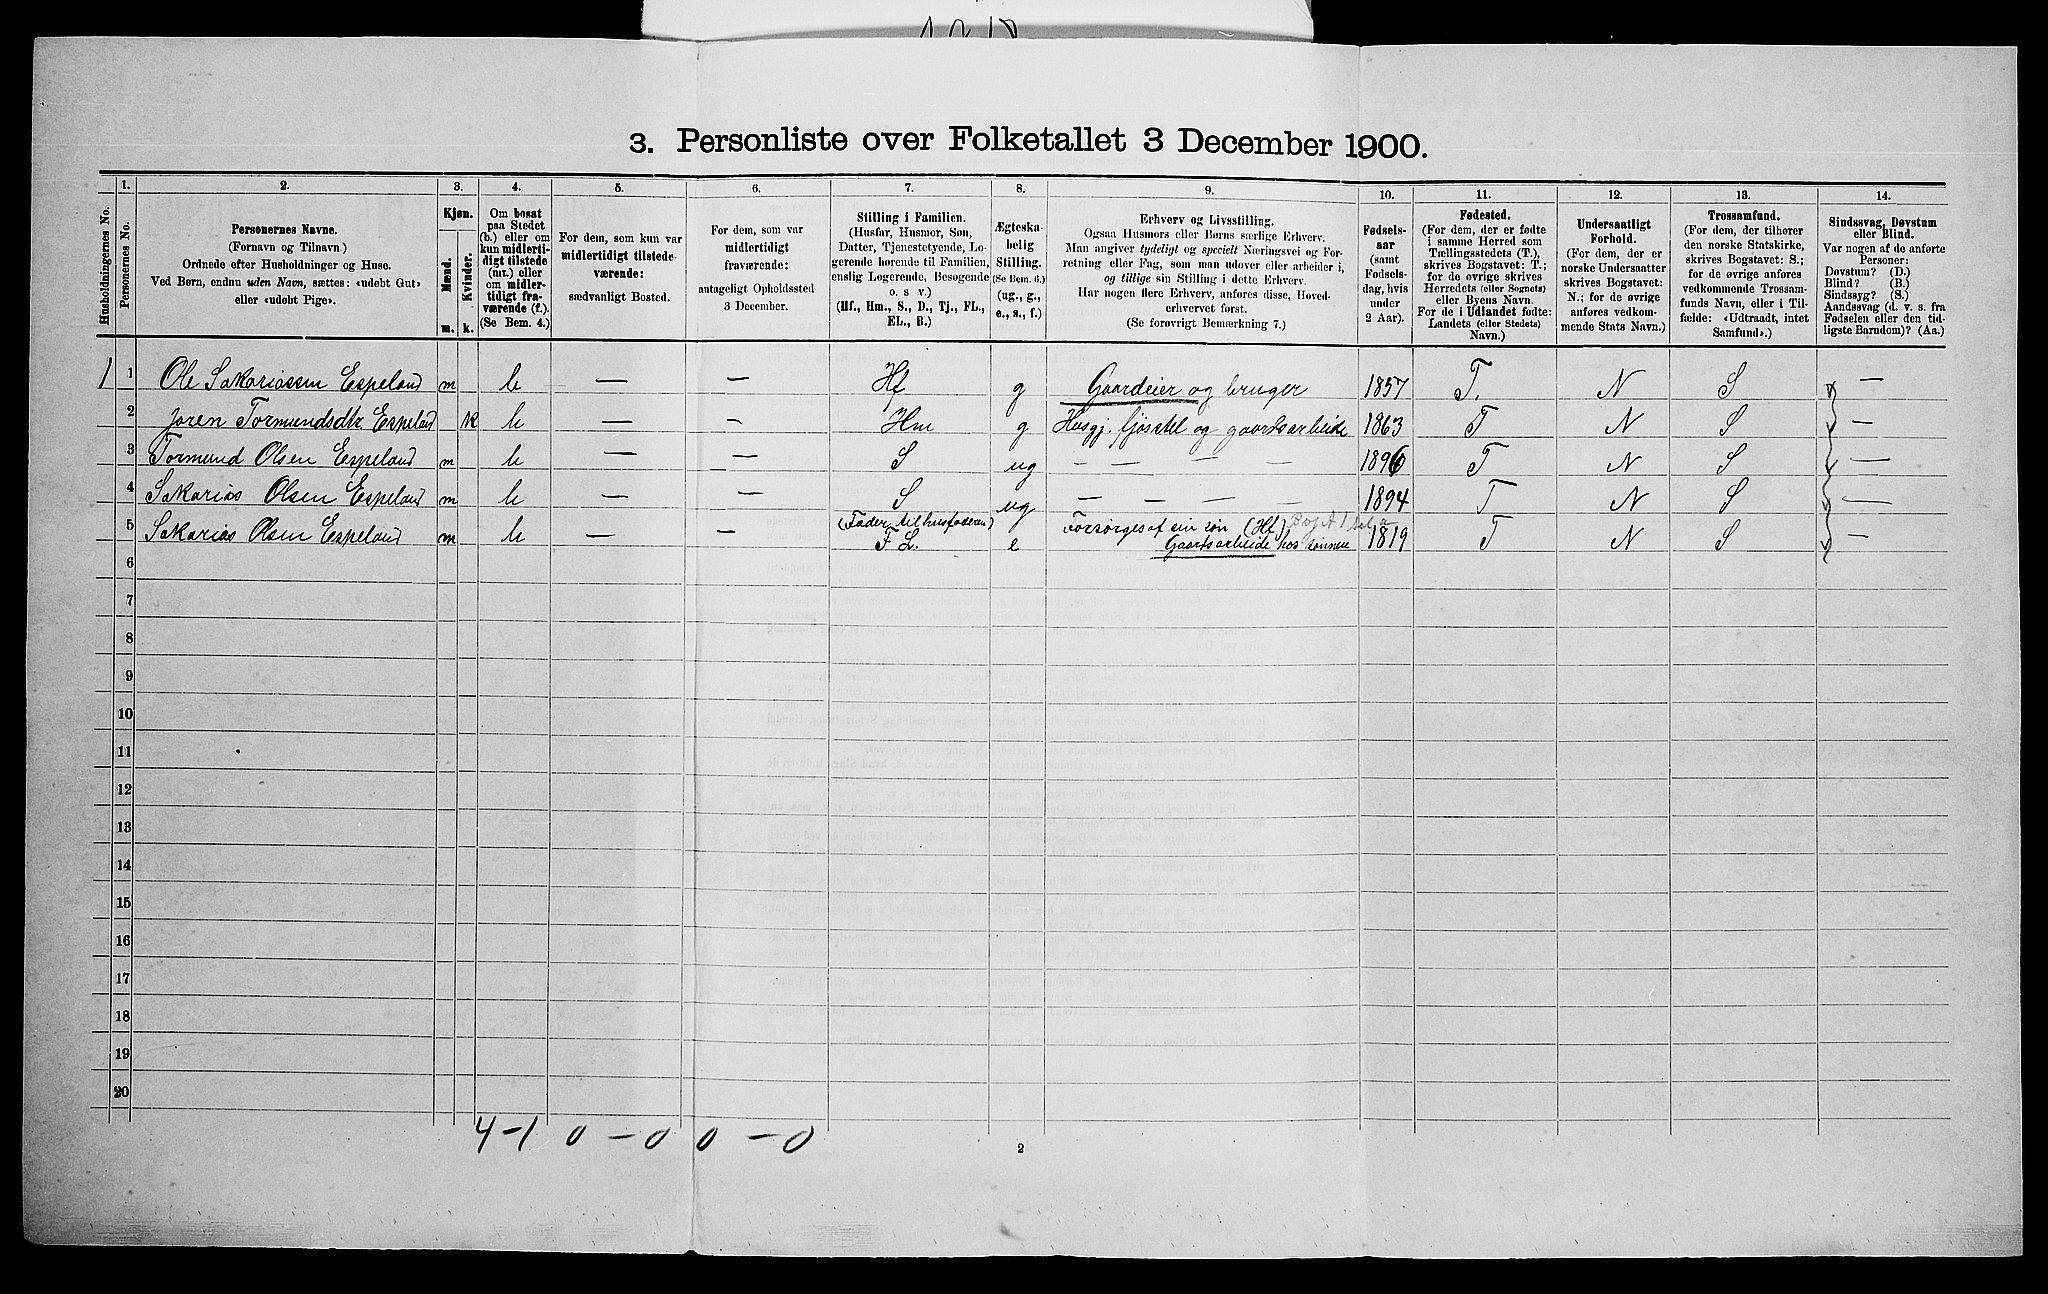 3. Personliste over Folketallet 3 December 1900.
Husholdningernes No.
1.
Personernes No.
2.
Personernes Navne.
(Fornavn og Tilnavn)
Ordnede efter Husholdninger og Huse.
Ved Børn, endnu uden Navn, sættes: «udøbt Gut»
eller «udøbt Pige».
3.
Kjøn.
Mænd.
Kvinder.
m.
k.
4.
Om bosat
paa Stedet
(b.) eller om
kun midlerti-
digt tilstede
(mt.) eller
om midler-
tidigt fra-
værende (f.).
(Se Bem. 4.)
5.
For dem, som kun var
midlertidigt tilstede-
værende:
sædvanligt Bosted.
6.
For dem, som var
midlertidigt
fraværende:
antageligt Opholdssted
3 December.
7.
Stilling i Familien.
(Husfar, Husmor, Søn,
Datter, Tjenestetyende, Lo-
gerende hørende til Familien,
enslig Logerende, Besøgende
o. s v.)
(Hf., Hm., S., D., Tj., FL.,
EL., B.)
8.
Ægteska-
belig
Stilling.
(Se Bem. 6.)
(ug., g.,
e., s., f.)
9.
Erhverv og Livsstilling.
Ogsaa Husmors eller Børns særlige Erhverv.
Man angiver tydeligt og specielt Næringsvei og For-
retning eller Fag, som man udøver eller arbeider i,
og tillige sin Stilling i dette Erhverv.
Har nogen flere Erhverv, anføres disse, Hoved-
erhvervet først.
(Se forøvrigt Bemærkning 7.)
10.
Fødsels-
aar
(samt
Fødsels-
dag, hvis
under
2 Aar).
11.
Fødested.
(For dem, der er fødte
i samme Herred som
Tællingsstedets (T.),
skrives Bogstavet: T.;
for de øvrige skrives
Herredets (eller Sognets)
eller Byens Navn.
For de i Udlandet fødte:
Landets (eller Stedets)
Navn.)
12.
Undersaatligt
Forhold.
(For dem, der er
norske Undersaatter
skrives Bogstavet:
N.; for de øvrige
anføres vedkom-
mende Stats Navn.)
13.
Trossamfund.
(For dem, der tilhører
den norske Statskirke,
skrives Bogstavet: S.;
for de øvrige anføres
vedkommende Trossam-
funds Navn, eller i Til-
fælde: «Udtraadt, intet
Samfund».)
14.
Sindssvag, Døvstum
eller Blind.
Var nogen af de anførte
Personer:
Døvstum? (D.)
Blind? (B.)
Sindssyg? (S.)
Aandssvag (d. v. s. fra
Fødselen eller den tid-
ligste Barndom)? (Aa.)
1 1 Ole Sakariassen Espeland m b — — Hf g Gaardeier og bruger 1857 T. N S —
2 Joren Tormundsdtr Espeland k b — — Hm g Husgj. fjøsstel og gaardsarbeide 1863 T N S —
3 Tormund Olsen Espeland m b — — S ug — — — — 1896 T N S —
4 Sakarias Olsen Espeland m b — — S ug — — — — 1894 T N S —
(Fader til husfaderen) Forsørges af sin søn (Hf)
5 Sakarias Olsen Espeland m b — — F L. e Gaardsarbeide hos sønnen 1819 T N S —
6
7
8
9
10
11
12
13
14
15
16
17
18
19
20
4 – 1 0 – 0 0 – 0
2